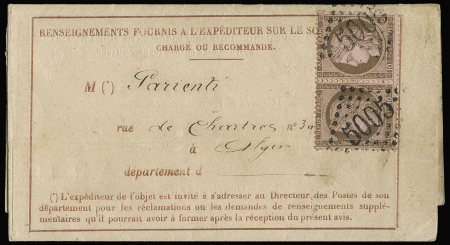 RENSEIGNEMENTS FOURNIS A L'EXPÉDITEUR SUR LE SO
CHARGÉ OU RECOMMANDÉ.
M (*) Parrenti
rue de Chartres n° 30
à Alger
département d
(*) L'expéditeur de l'objet est invité à s'adresser au Directeur des Postes de son
département pour les réclamations ou les demandes de renseignements supplé-
mentaires qu'il pourrait avoir à former après la réception du présent avis.
5005
5005